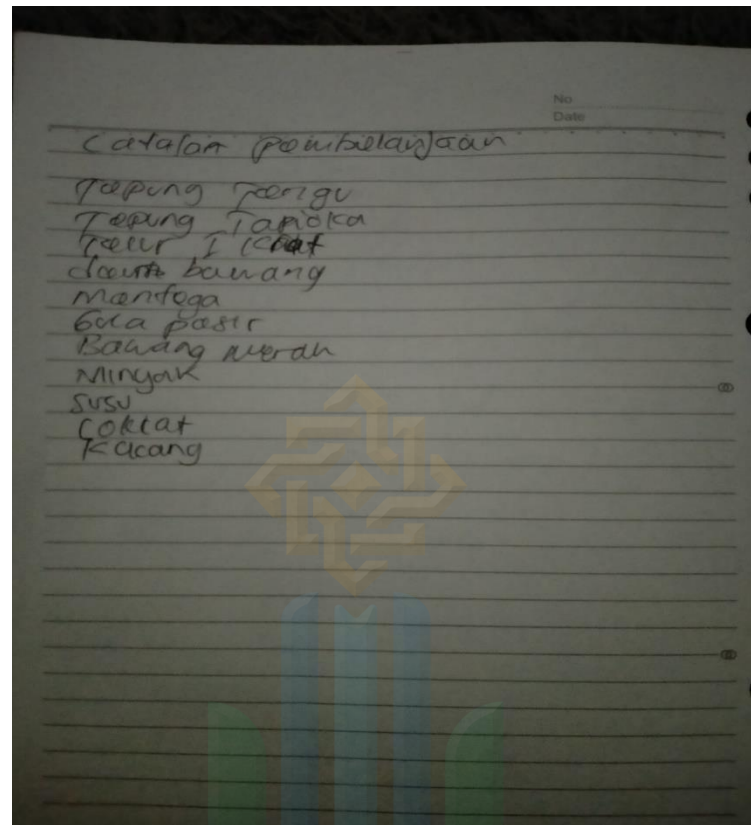 No
Date
Catatan pembelanjaan
Tepung Terigu
Tepung Tapioka
Telur I
daun bawang
Mentega
Gula pasir
Bawang merah
Minyak
Susu
Coklat
Kacang